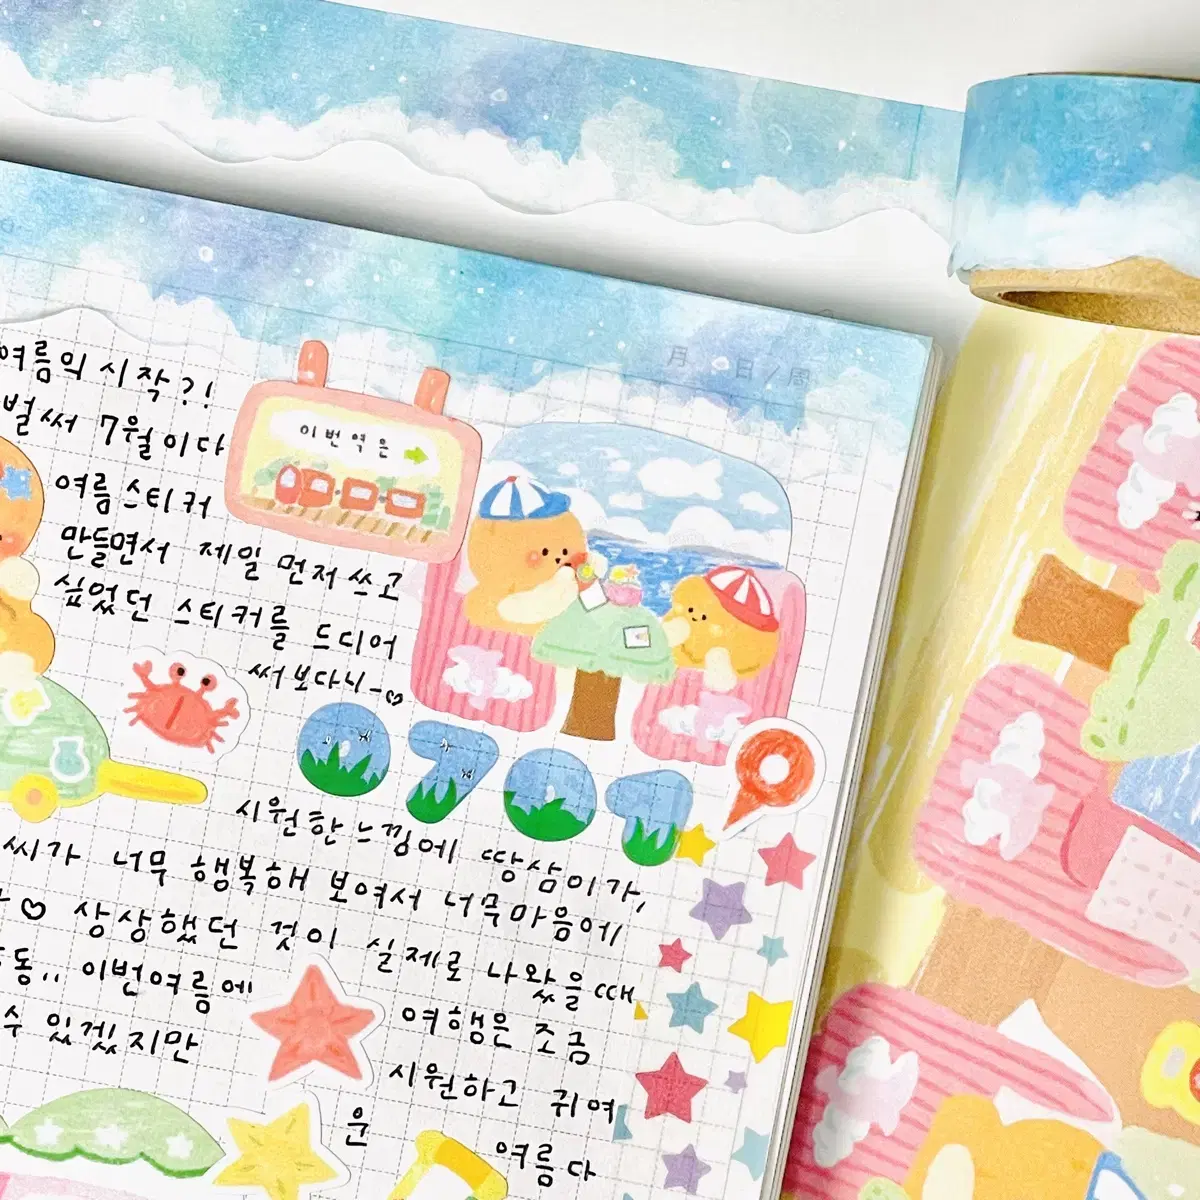 月 日／周
여름의 시작?!
벌써 7월이다
이번역은
여름스티커
만들면서 제일 먼저 쓰고
싶었던 스티커를 드디어
써보다니~♡
0701
시원한 느낌에 땅삼이가,
씨가 너무 행복해 보여서 너무마음에
♡ 상상했던 것이 실제로 나왔을때
동.. 이번여름에
여행은 조금
수 있겠지만
시원하고 귀여
운 여름다